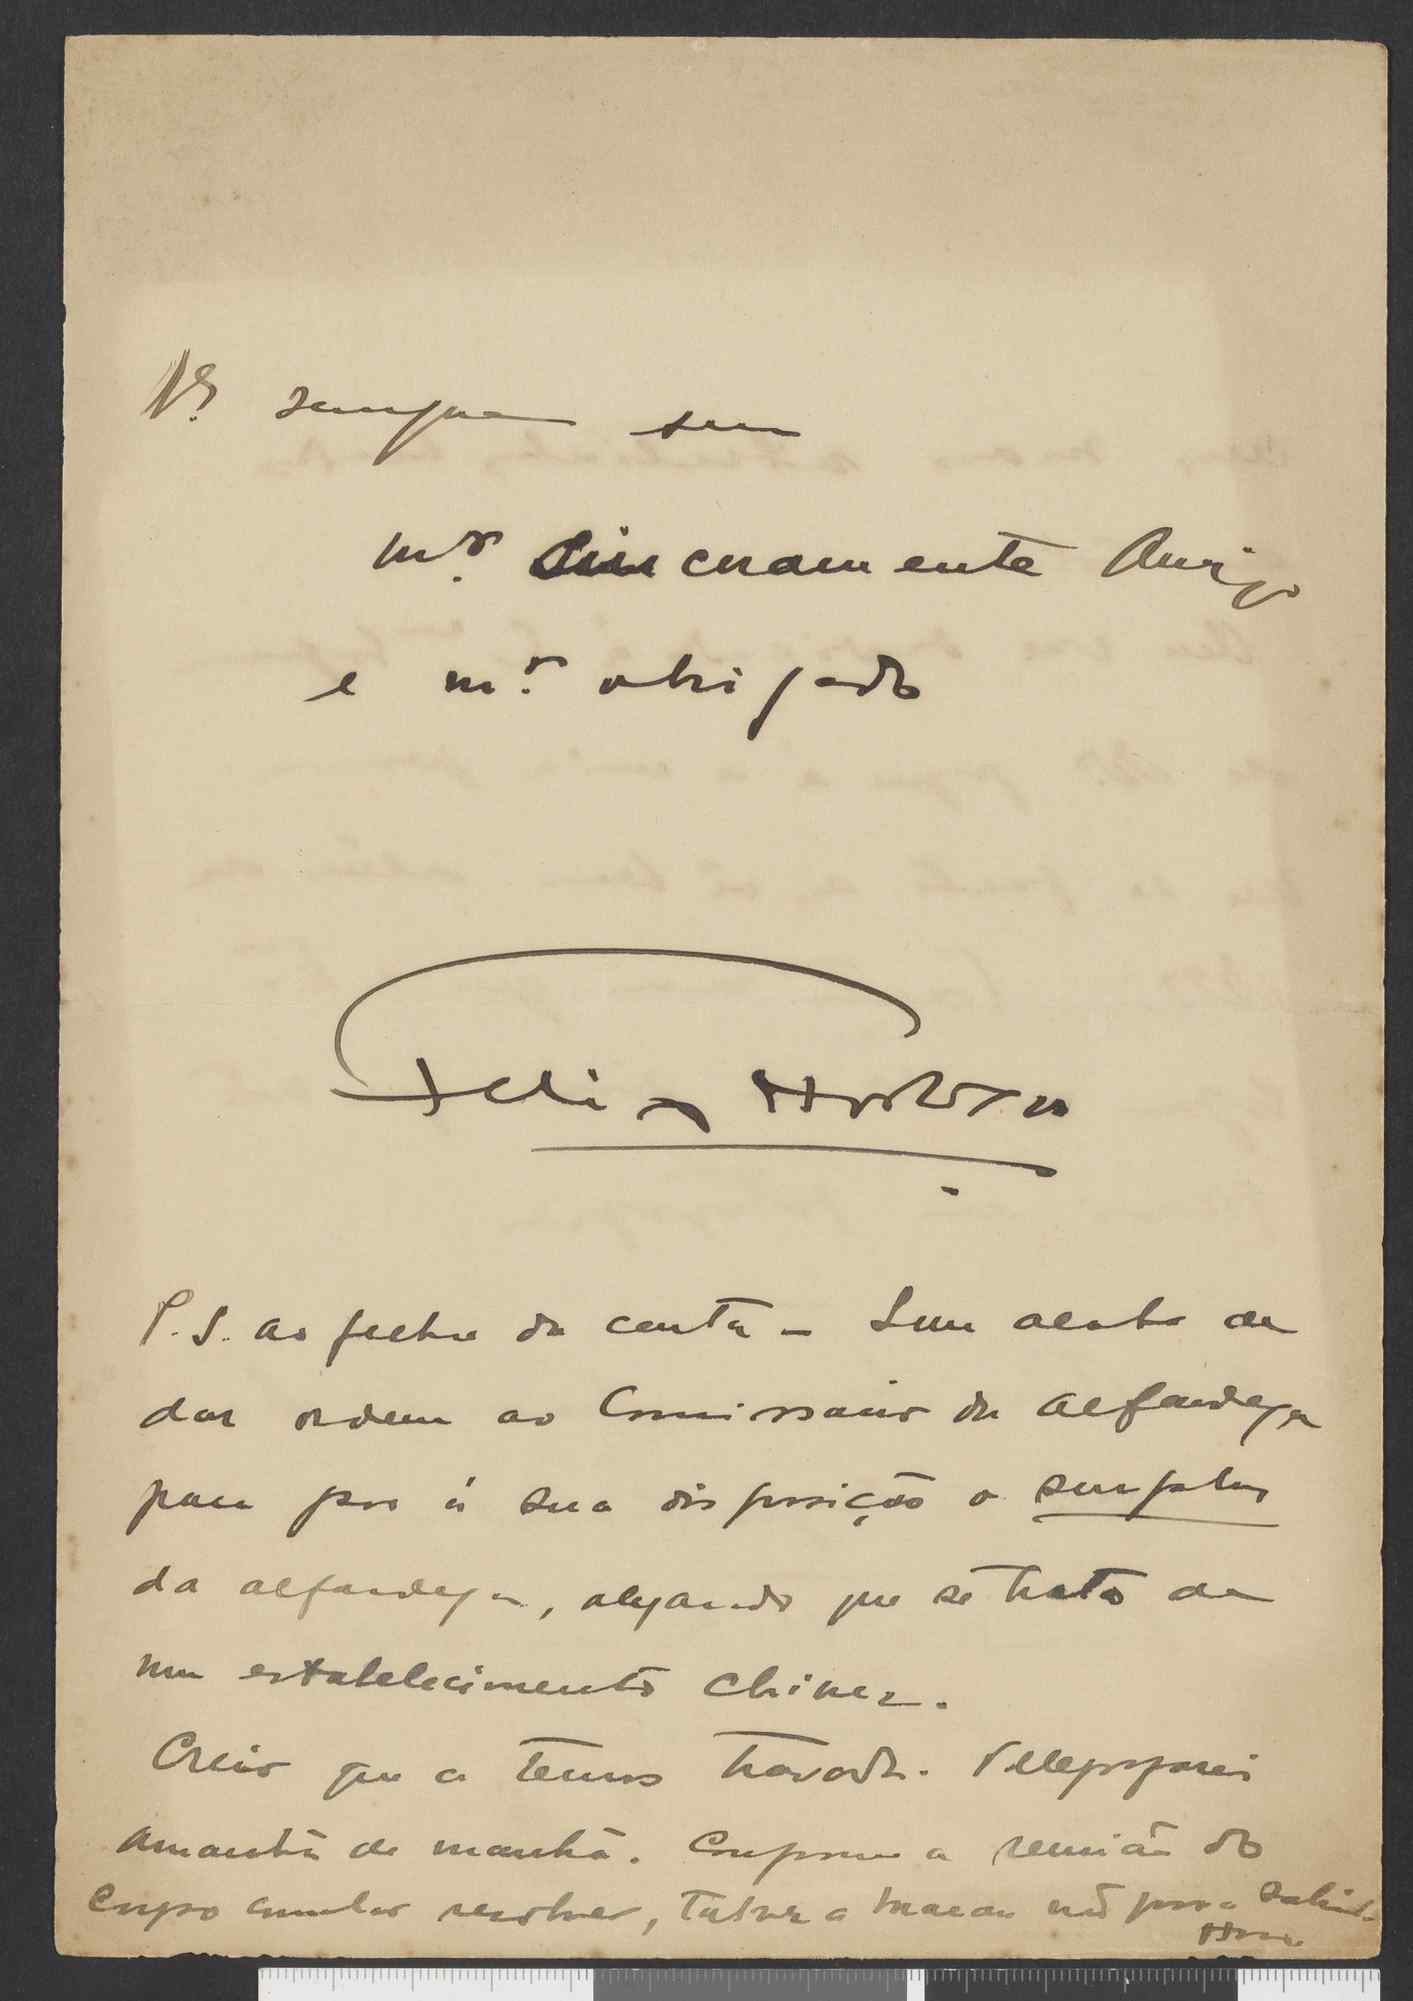 sempre seu
m.to sinceramente Amigo
e m.to obrigado
Felix Horta
P.S. ao fecho da carta – Sun acaba de
dar ordem ao Comissario da alfandega
para por á sua disposição o surplus
da alfandega, alegando que se trata de
um estabelecimento chinez.
Creio que a temos travada. Telegrafarei
amanhã de manhã. Conforme a reunião do
corpo consular resolver, talvez a Macau não possa